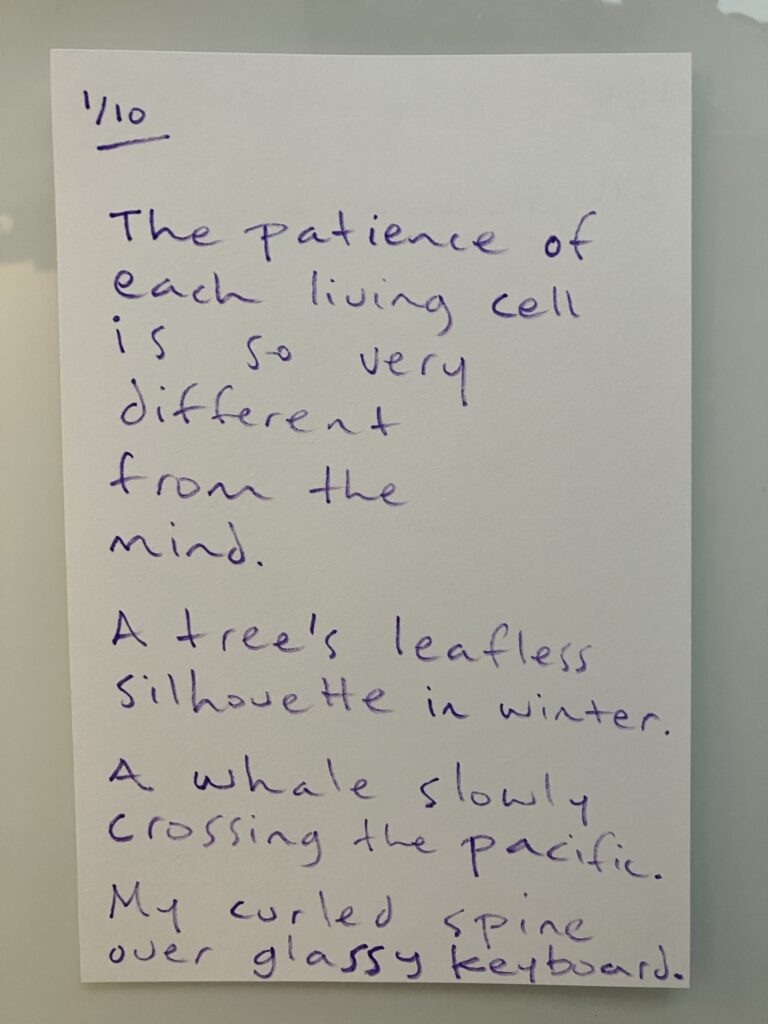 1/10
The patience of
each living cell
is so very
different
from the
mind.
A tree's leafless
silhouette in winter.
A whale slowly
crossing the pacific.
My curled spine
over glassy keyboard.